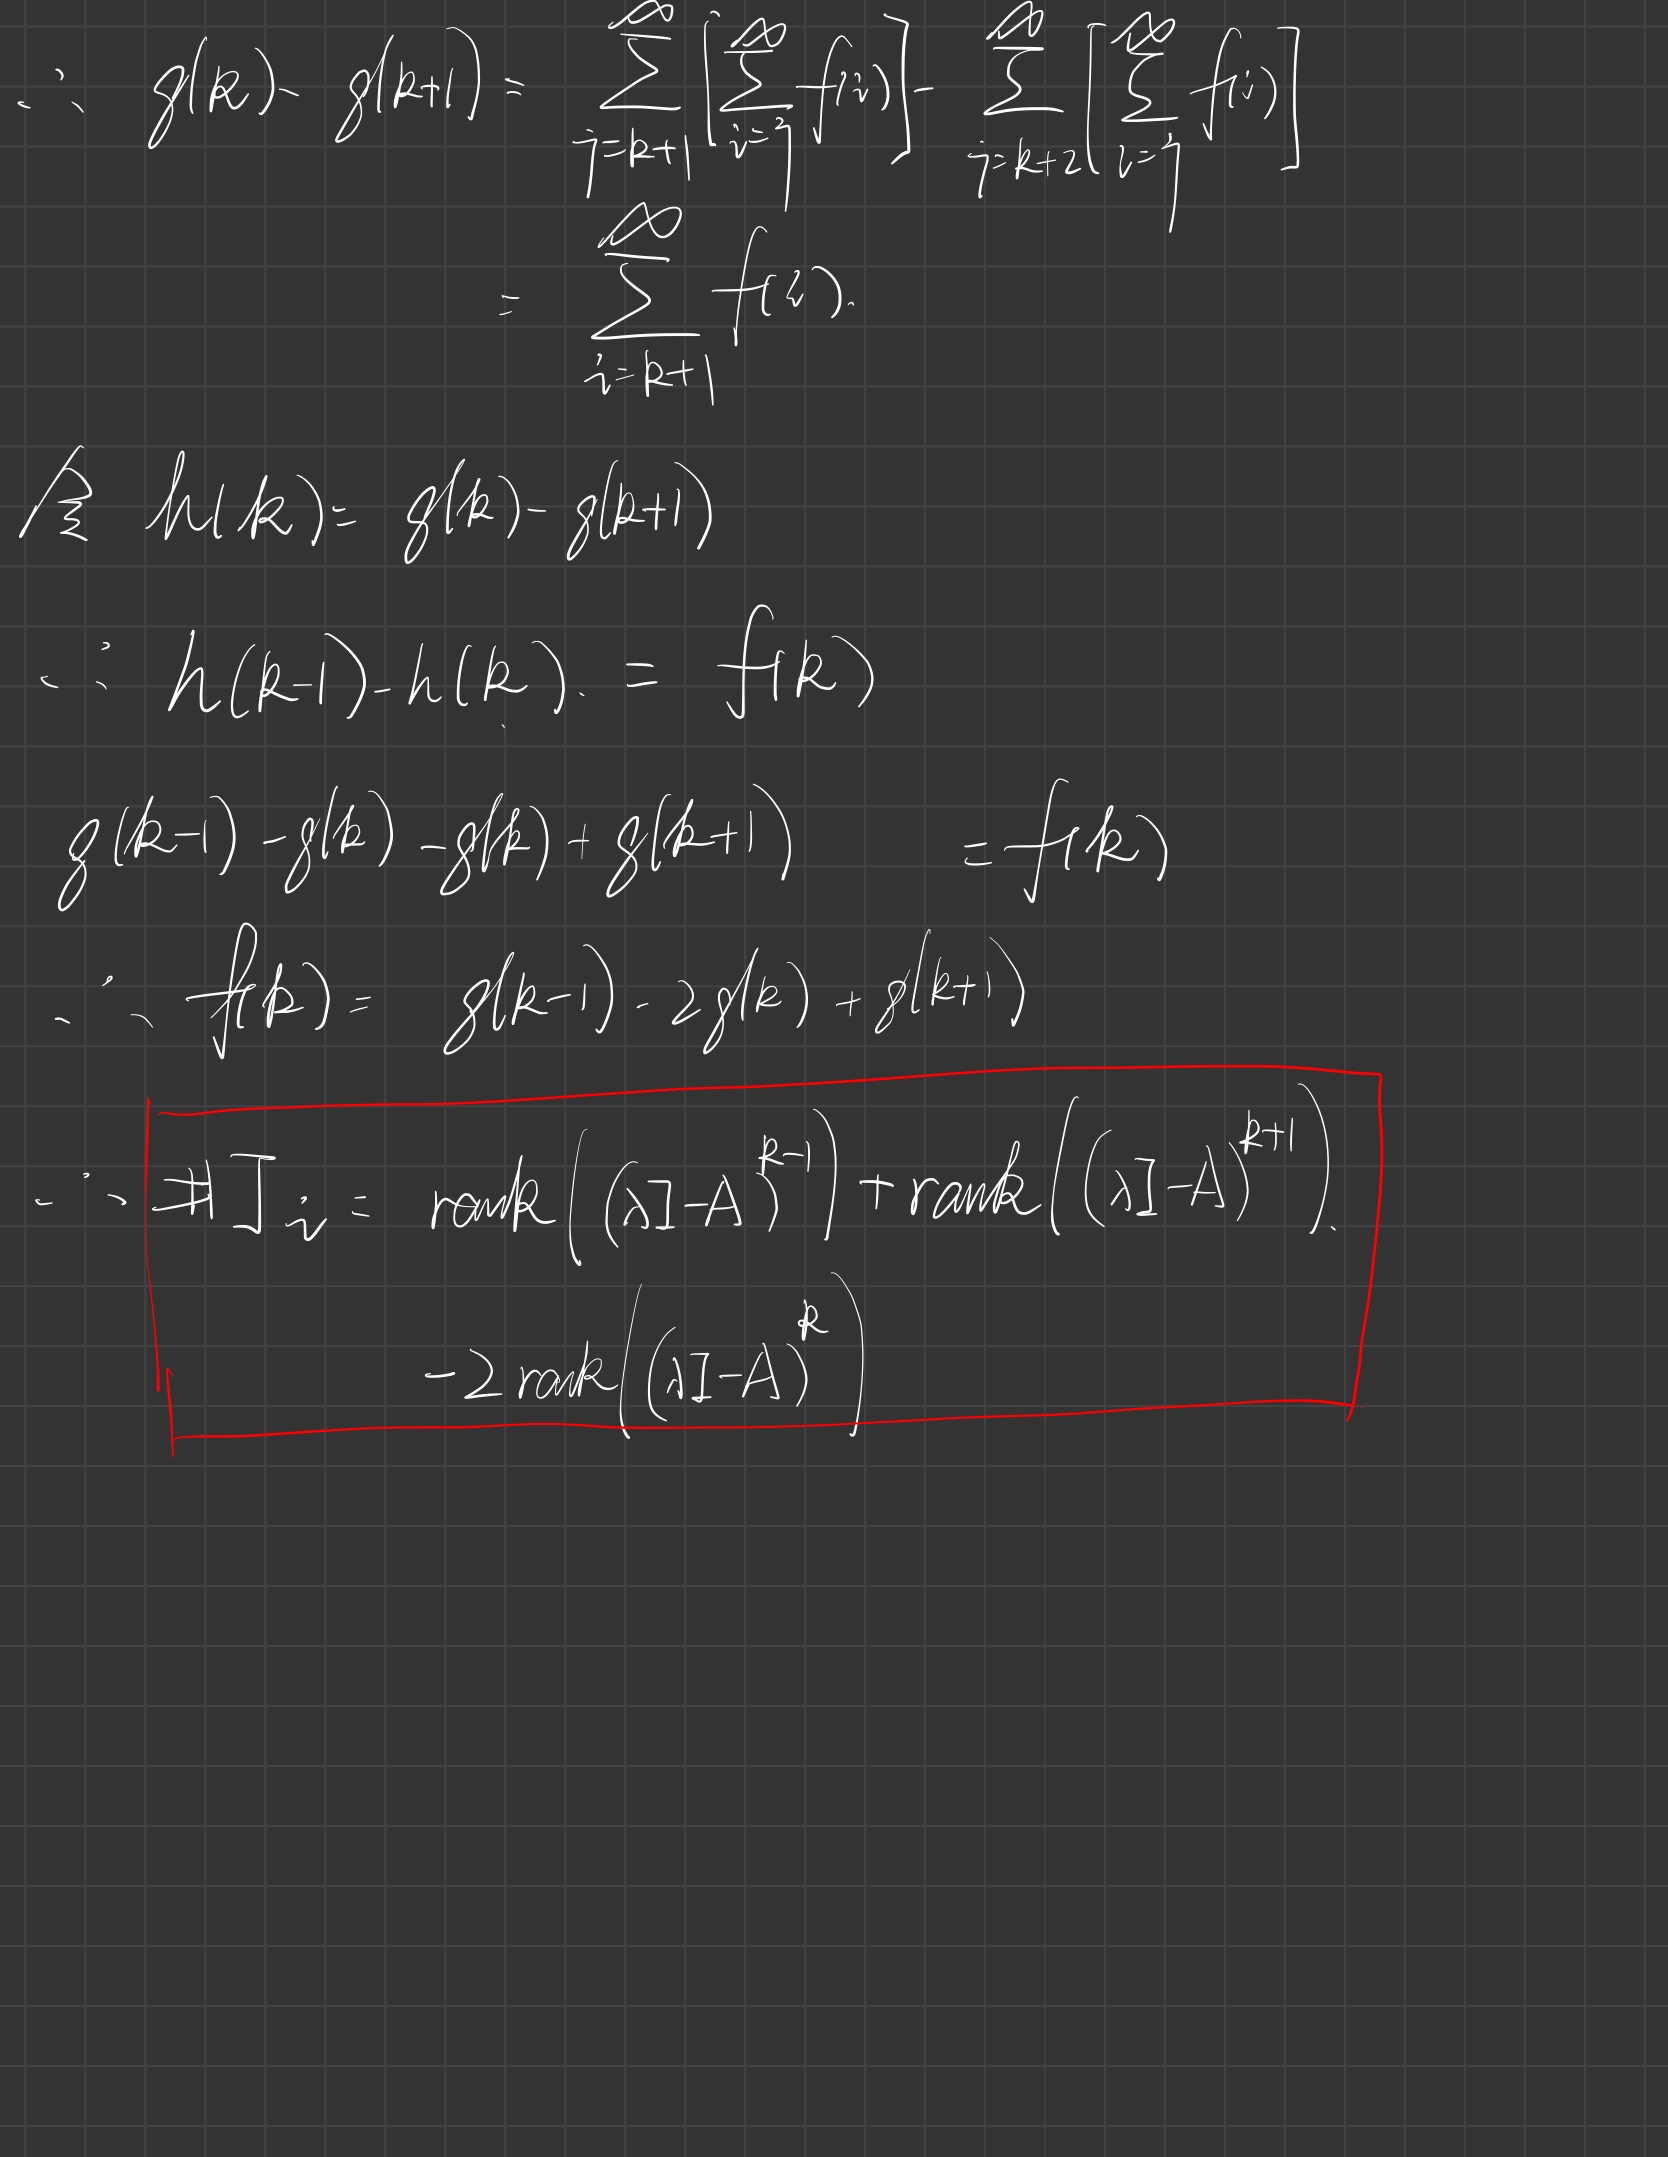 ∴ g(k) - g(k+1) = ∑_{j=k+1}^{∞} [∑_{i=j}^{∞} f(i)] - ∑_{j=k+2}^{∞} [∑_{i=j}^{∞} f(i)]
= ∑_{i=k+1}^{∞} f(i).
令 h(k) = g(k) - g(k+1)
∴ h(k-1) - h(k). = f(k)
g(k-1) - g(k) - g(k) + g(k+1) = f(k)
∴ f(k) = g(k-1) - 2g(k) + g(k+1)
∴ #J_i = rank((λI-A)^{k-1}) + rank((λI-A)^{k+1}).
-2 rank((λI-A)^k)